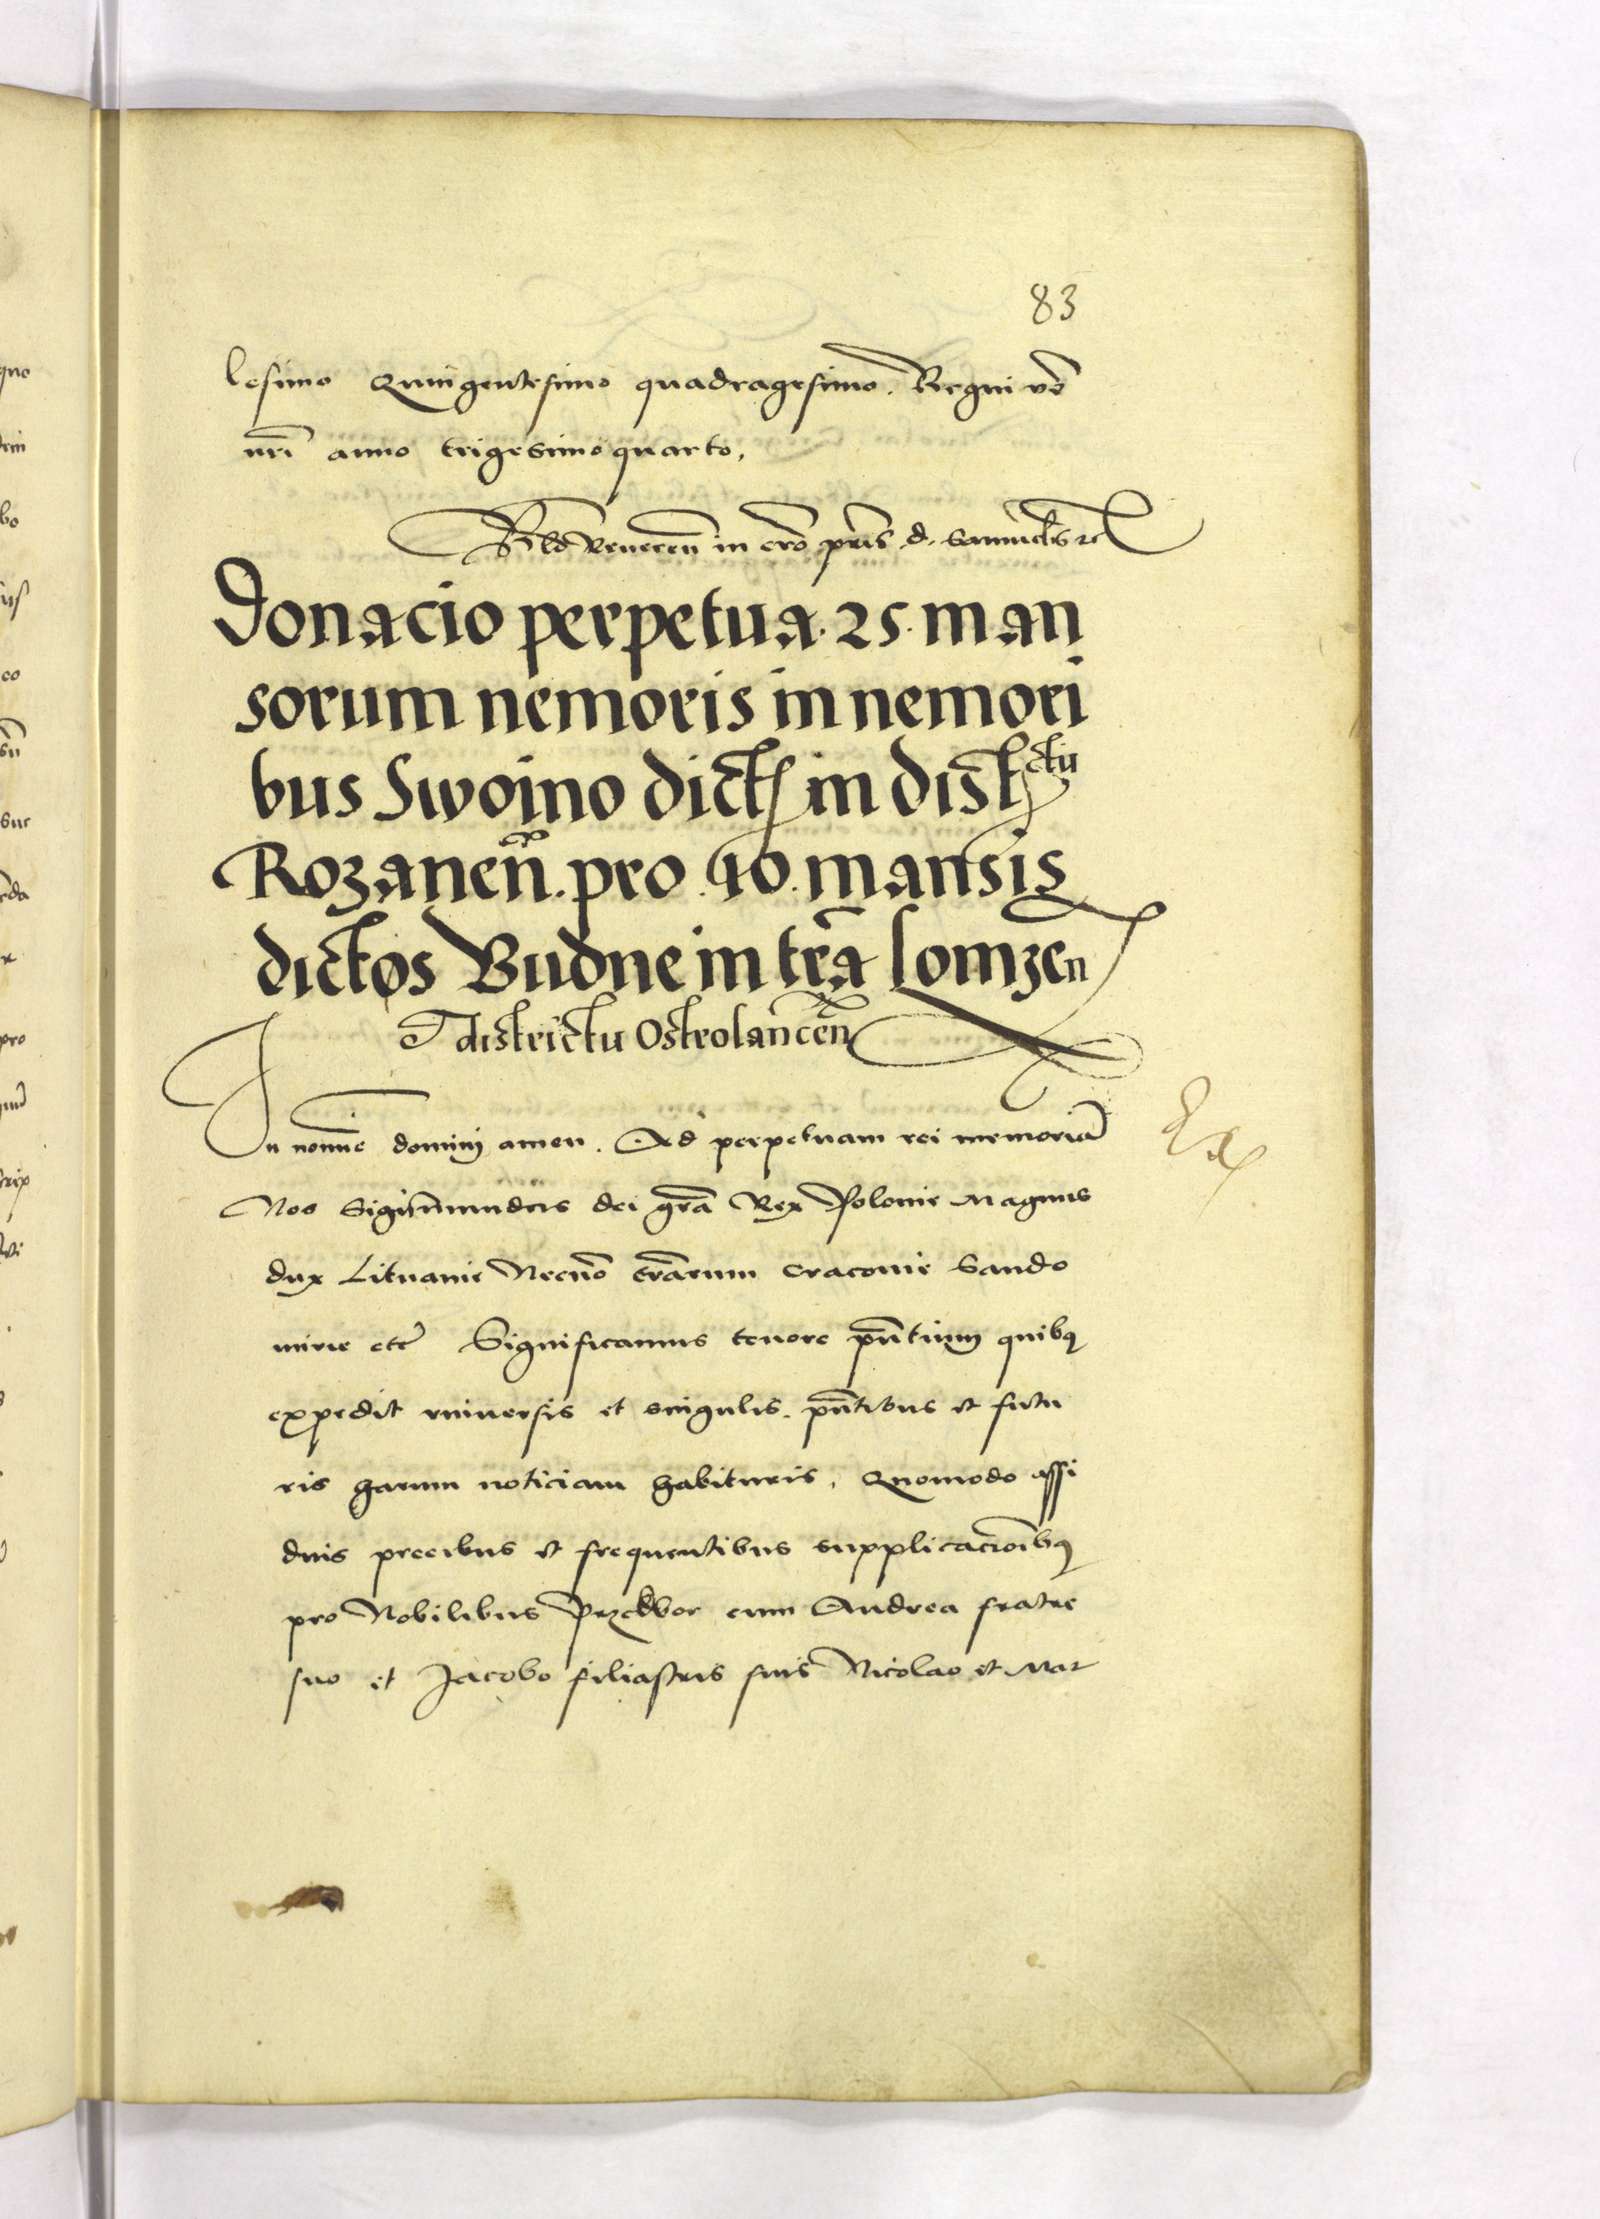 83
lesimo Quingentesimo quadragesimo. Regni vō
nrī anno trigesimo quarto,
Rld Reveren in Xρō prīs d. Samuelis
Donacio perpetua. 25. man
sorum nemoris in nemori
bus Swoino dict in distctu
Rozanen̄. pro. 40. mansis
dictos Budne in trā lomzen
districtu Ostrolancen̄
In nomīe dominj amen. Ad perpetuam rei memoriā
Nos Sigismundus dei grā Rex Polonie Magnus
dux Lituanie Necnō trārum Cracovie Sando
mirie etc Significamus tenore pn̄tium quibq
expedit vniversis et singulis. pn̄tibus et futu
ris harum noticiam habituris, Quomodo assi
duis precibus et frequentibus supplicaciōibq
pro Nobilibus Przedbor cum Andrea fratre
suo et Jacobo filiastris suis Nicolao et Mar